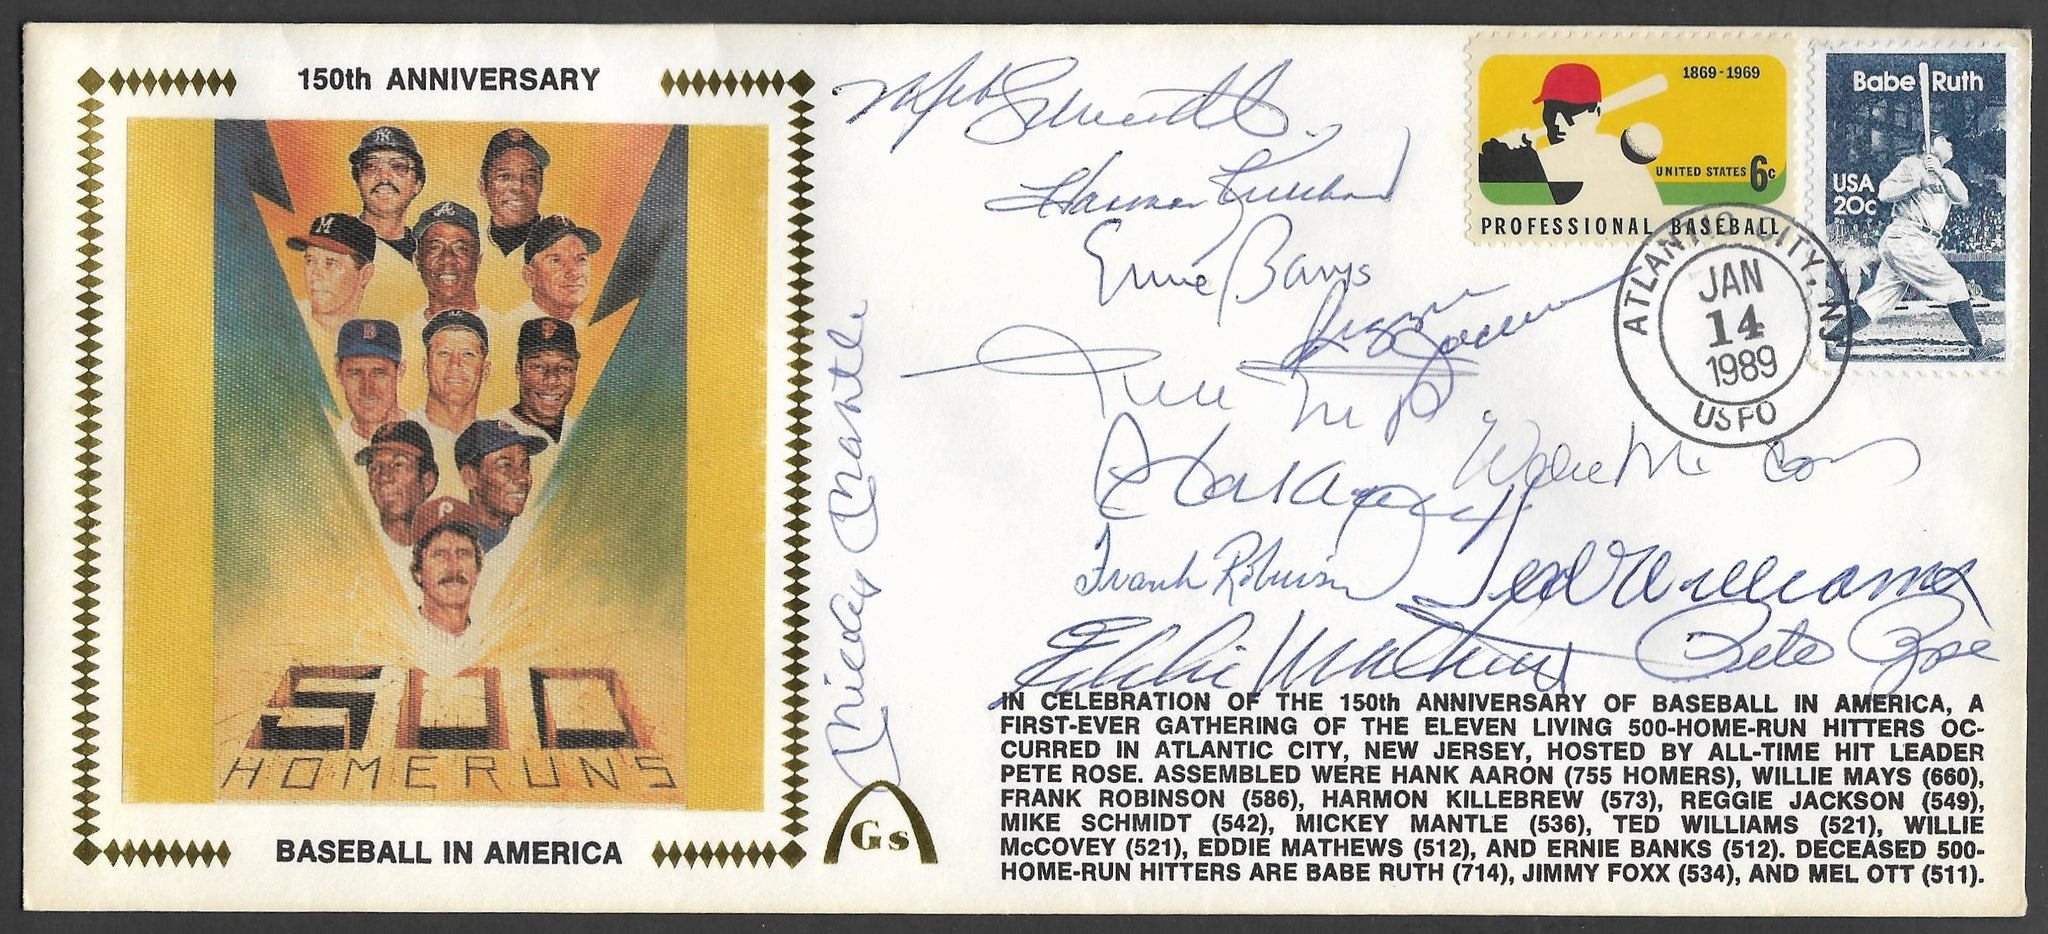 150th ANNIVERSARY
500
HOME RUNS
BASEBALL IN AMERICA
Gs
Mickey Mantle
Mike Schmidt
Harmon Killebrew
Ernie Banks
Reggie Jackson
Willie Mays
Willie McCovey
Hank Aaron
Frank Robinson
Ted Williams
Eddie Mathews
Pete Rose
1869-1969
UNITED STATES 6c
PROFESSIONAL BASEBALL
Babe Ruth
USA
20c
ATLANTIC CITY, NJ
JAN
14
1989
USPO
IN CELEBRATION OF THE 150th ANNIVERSARY OF BASEBALL IN AMERICA, A
FIRST-EVER GATHERING OF THE ELEVEN LIVING 500-HOME-RUN HITTERS OC-
CURRED IN ATLANTIC CITY, NEW JERSEY, HOSTED BY ALL-TIME HIT LEADER
PETE ROSE. ASSEMBLED WERE HANK AARON (755 HOMERS), WILLIE MAYS (660),
FRANK ROBINSON (586), HARMON KILLEBREW (573), REGGIE JACKSON (549),
MIKE SCHMIDT (542), MICKEY MANTLE (536), TED WILLIAMS (521), WILLIE
McCOVEY (521), EDDIE MATHEWS (512), AND ERNIE BANKS (512). DECEASED 500-
HOME-RUN HITTERS ARE BABE RUTH (714), JIMMY FOXX (534), AND MEL OTT (511).